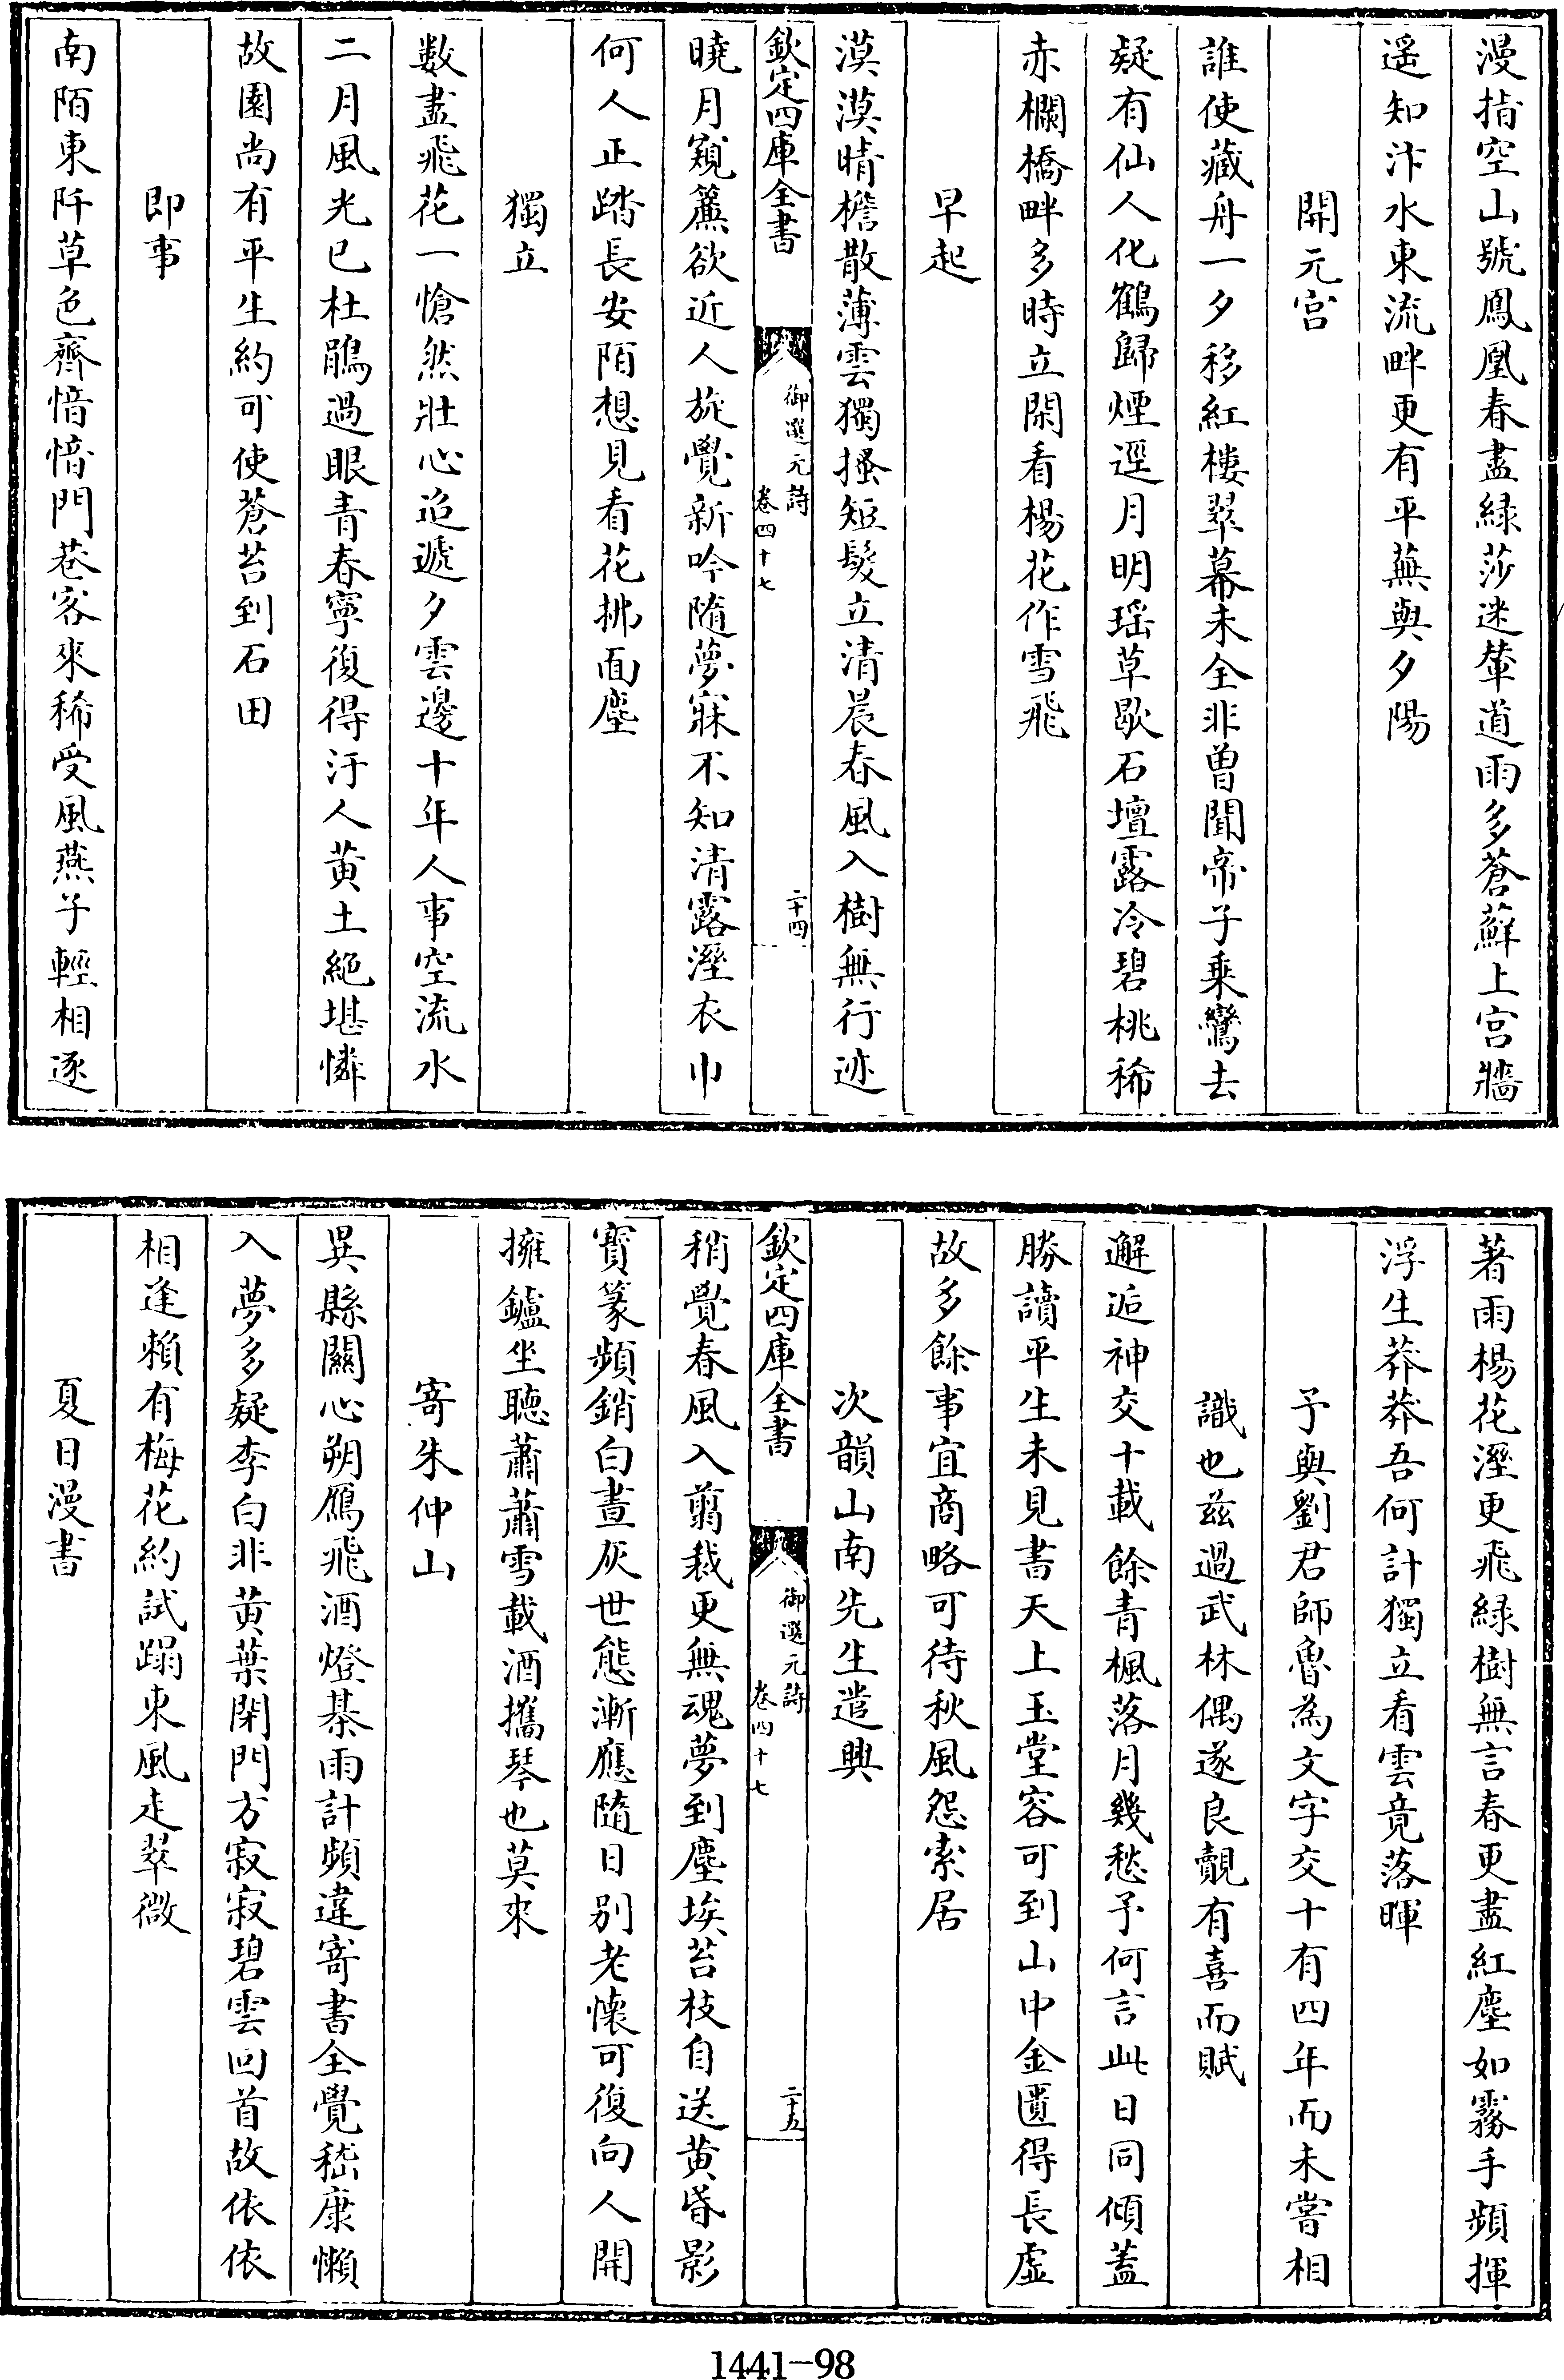 漫指空山號鳳凰春盡緑莎迷輦道雨多蒼蘚上宫牆
遥知汴水東流畔更有平蕪與夕陽
開元宫
誰使藏舟一夕移紅樓翠幕未全非曽聞帝子乗鸞去
疑有仙人化鶴歸煙逕月明瑶草歇石壇露冷碧桃稀
赤欄橋畔多時立閑看楊花作雪飛
早起
漠漠晴檐散薄雲獨搔短髮立清晨春風入樹無行迹
欽定四庫全書
御選元詩
卷四十七
二十四
曉月窺簾欲近人旋覺新吟隨夢寐不知清露溼衣巾
何人正踏長安陌想見看花拂面塵
獨立
數盡飛花一愴然壯心迢遞夕雲邊十年人事空流水
二月風光已杜鵑過眼青春寧復得汙人黄土絶堪憐
故園尚有平生約可使蒼苔到石田
即事
南陌東阡草色齊愔愔門巷客來稀受風燕子輕相逐
著雨楊花溼更飛緑樹無言春更盡紅塵如霧手頻揮
浮生莽莽吾何計獨立看雲竟落暉
予與劉君師魯為文字交十有四年而未嘗相
識也兹過武林偶遂良覿有喜而賦
邂逅神交十載餘青楓落月幾愁予何言此日同傾蓋
勝讀平生未見書天上玉堂容可到山中金匱得長虚
故多餘事宜商略可待秋風怨索居
次韻山南先生遣興
欽定四庫全書
御選元詩
卷四十七
二十五
稍覺春風入翦裁更無魂夢到塵埃苔枝自送黄昏影
寳篆頻銷白晝灰世態漸應隨日别老懐可復向人開
擁鑪坐聽蕭蕭雪載酒攜琴也莫來
寄朱仲山
異縣關心朔鴈飛酒燈棊雨計頻違寄書全覺嵇康懶
入夢多疑李白非黄葉閉門方寂寂碧雲回首故依依
相逢賴有梅花約試蹋東風走翠微
夏日漫書
1441-98